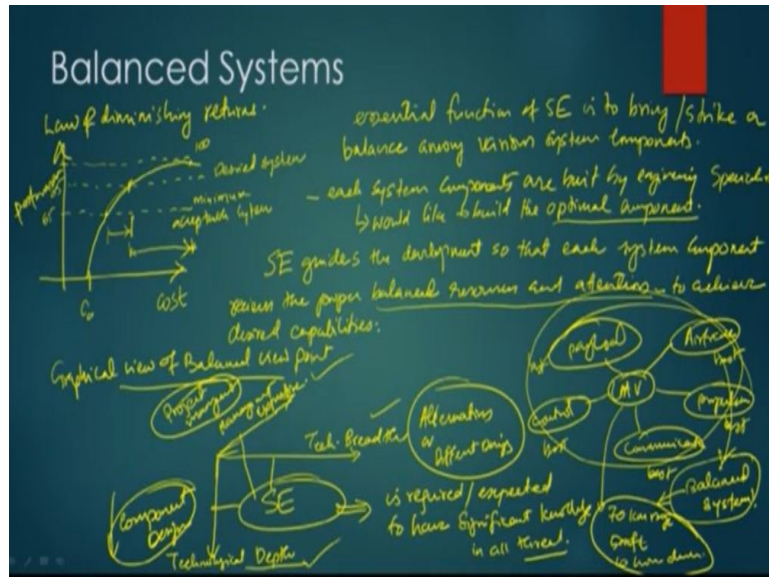 Balanced Systems
Law of diminishing returns.
100
Desired system
minimum
acceptable system
performance
65
C₀
cost
essential function of SE is to bring / strike a
balance among various system components.
- each system components are built by engineering
↳ would like to build the optimal component.
SE guides the development so that each system component
receives the proper balanced resources and attention to achieve
desired capabilities.
Graphical view of Balanced view point
Project manager
management
Tech. Breadth
Alternatives
or
Different
Component
Design
SE
is required / expected
to have significant knowledge
in all three.
Technological Depth
payload
best
Airframe
best
MV
control
best
propulsion
best
Communication
best
Balanced
System
70 km range